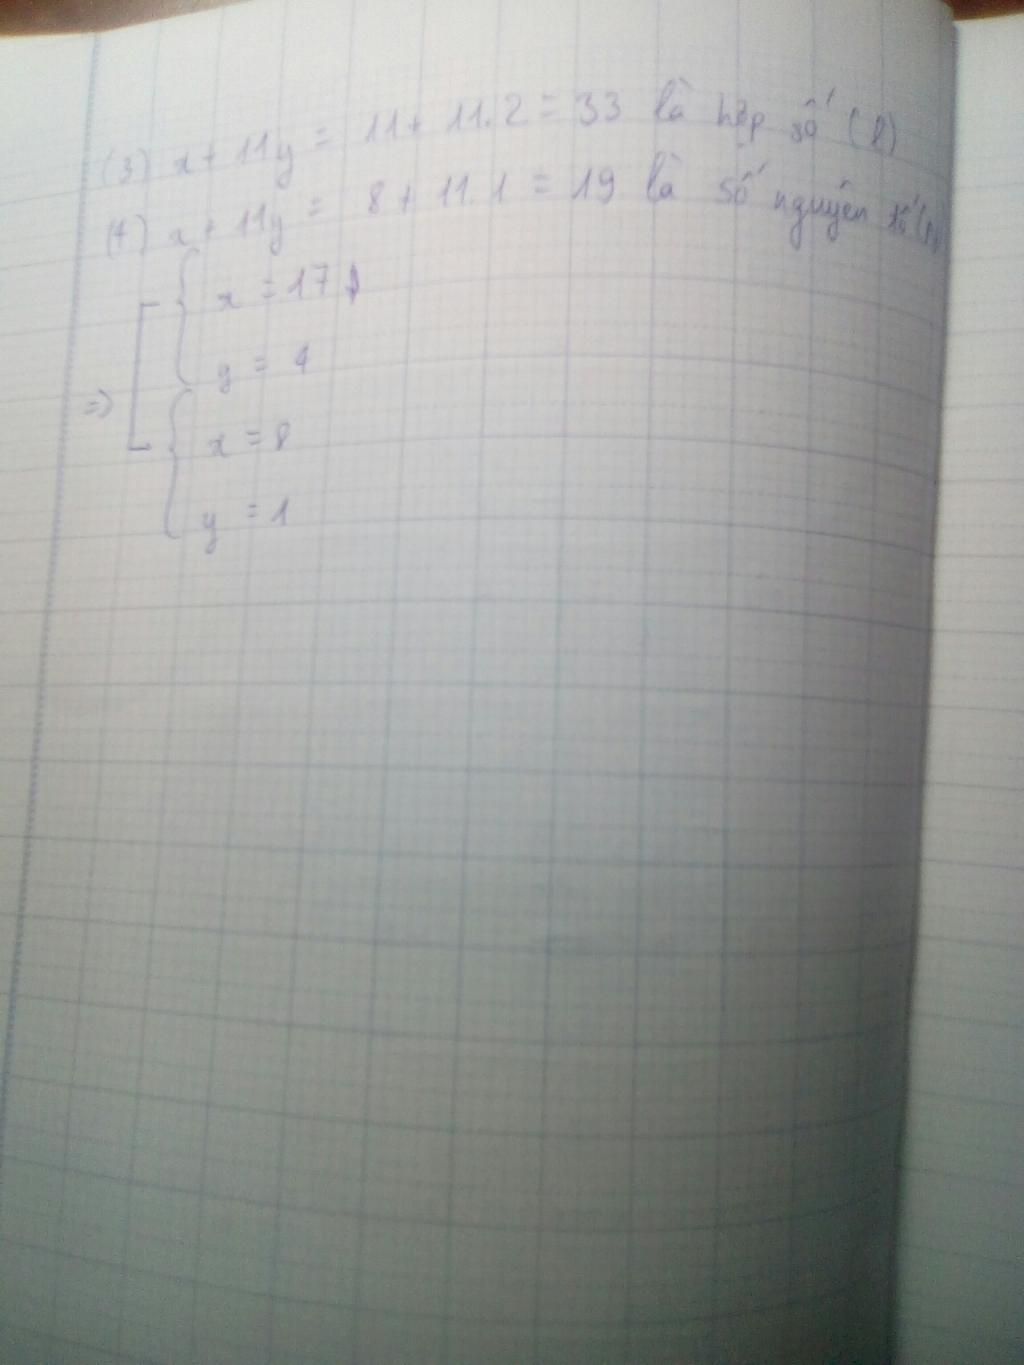 (3) x + 11y = 11 + 11.2 = 33 là hợp số (l)
(4) x + 11y = 8 + 11.1 = 19 là số nguyên tố
x = 17
y = 4
=>
x = 8
y = 1